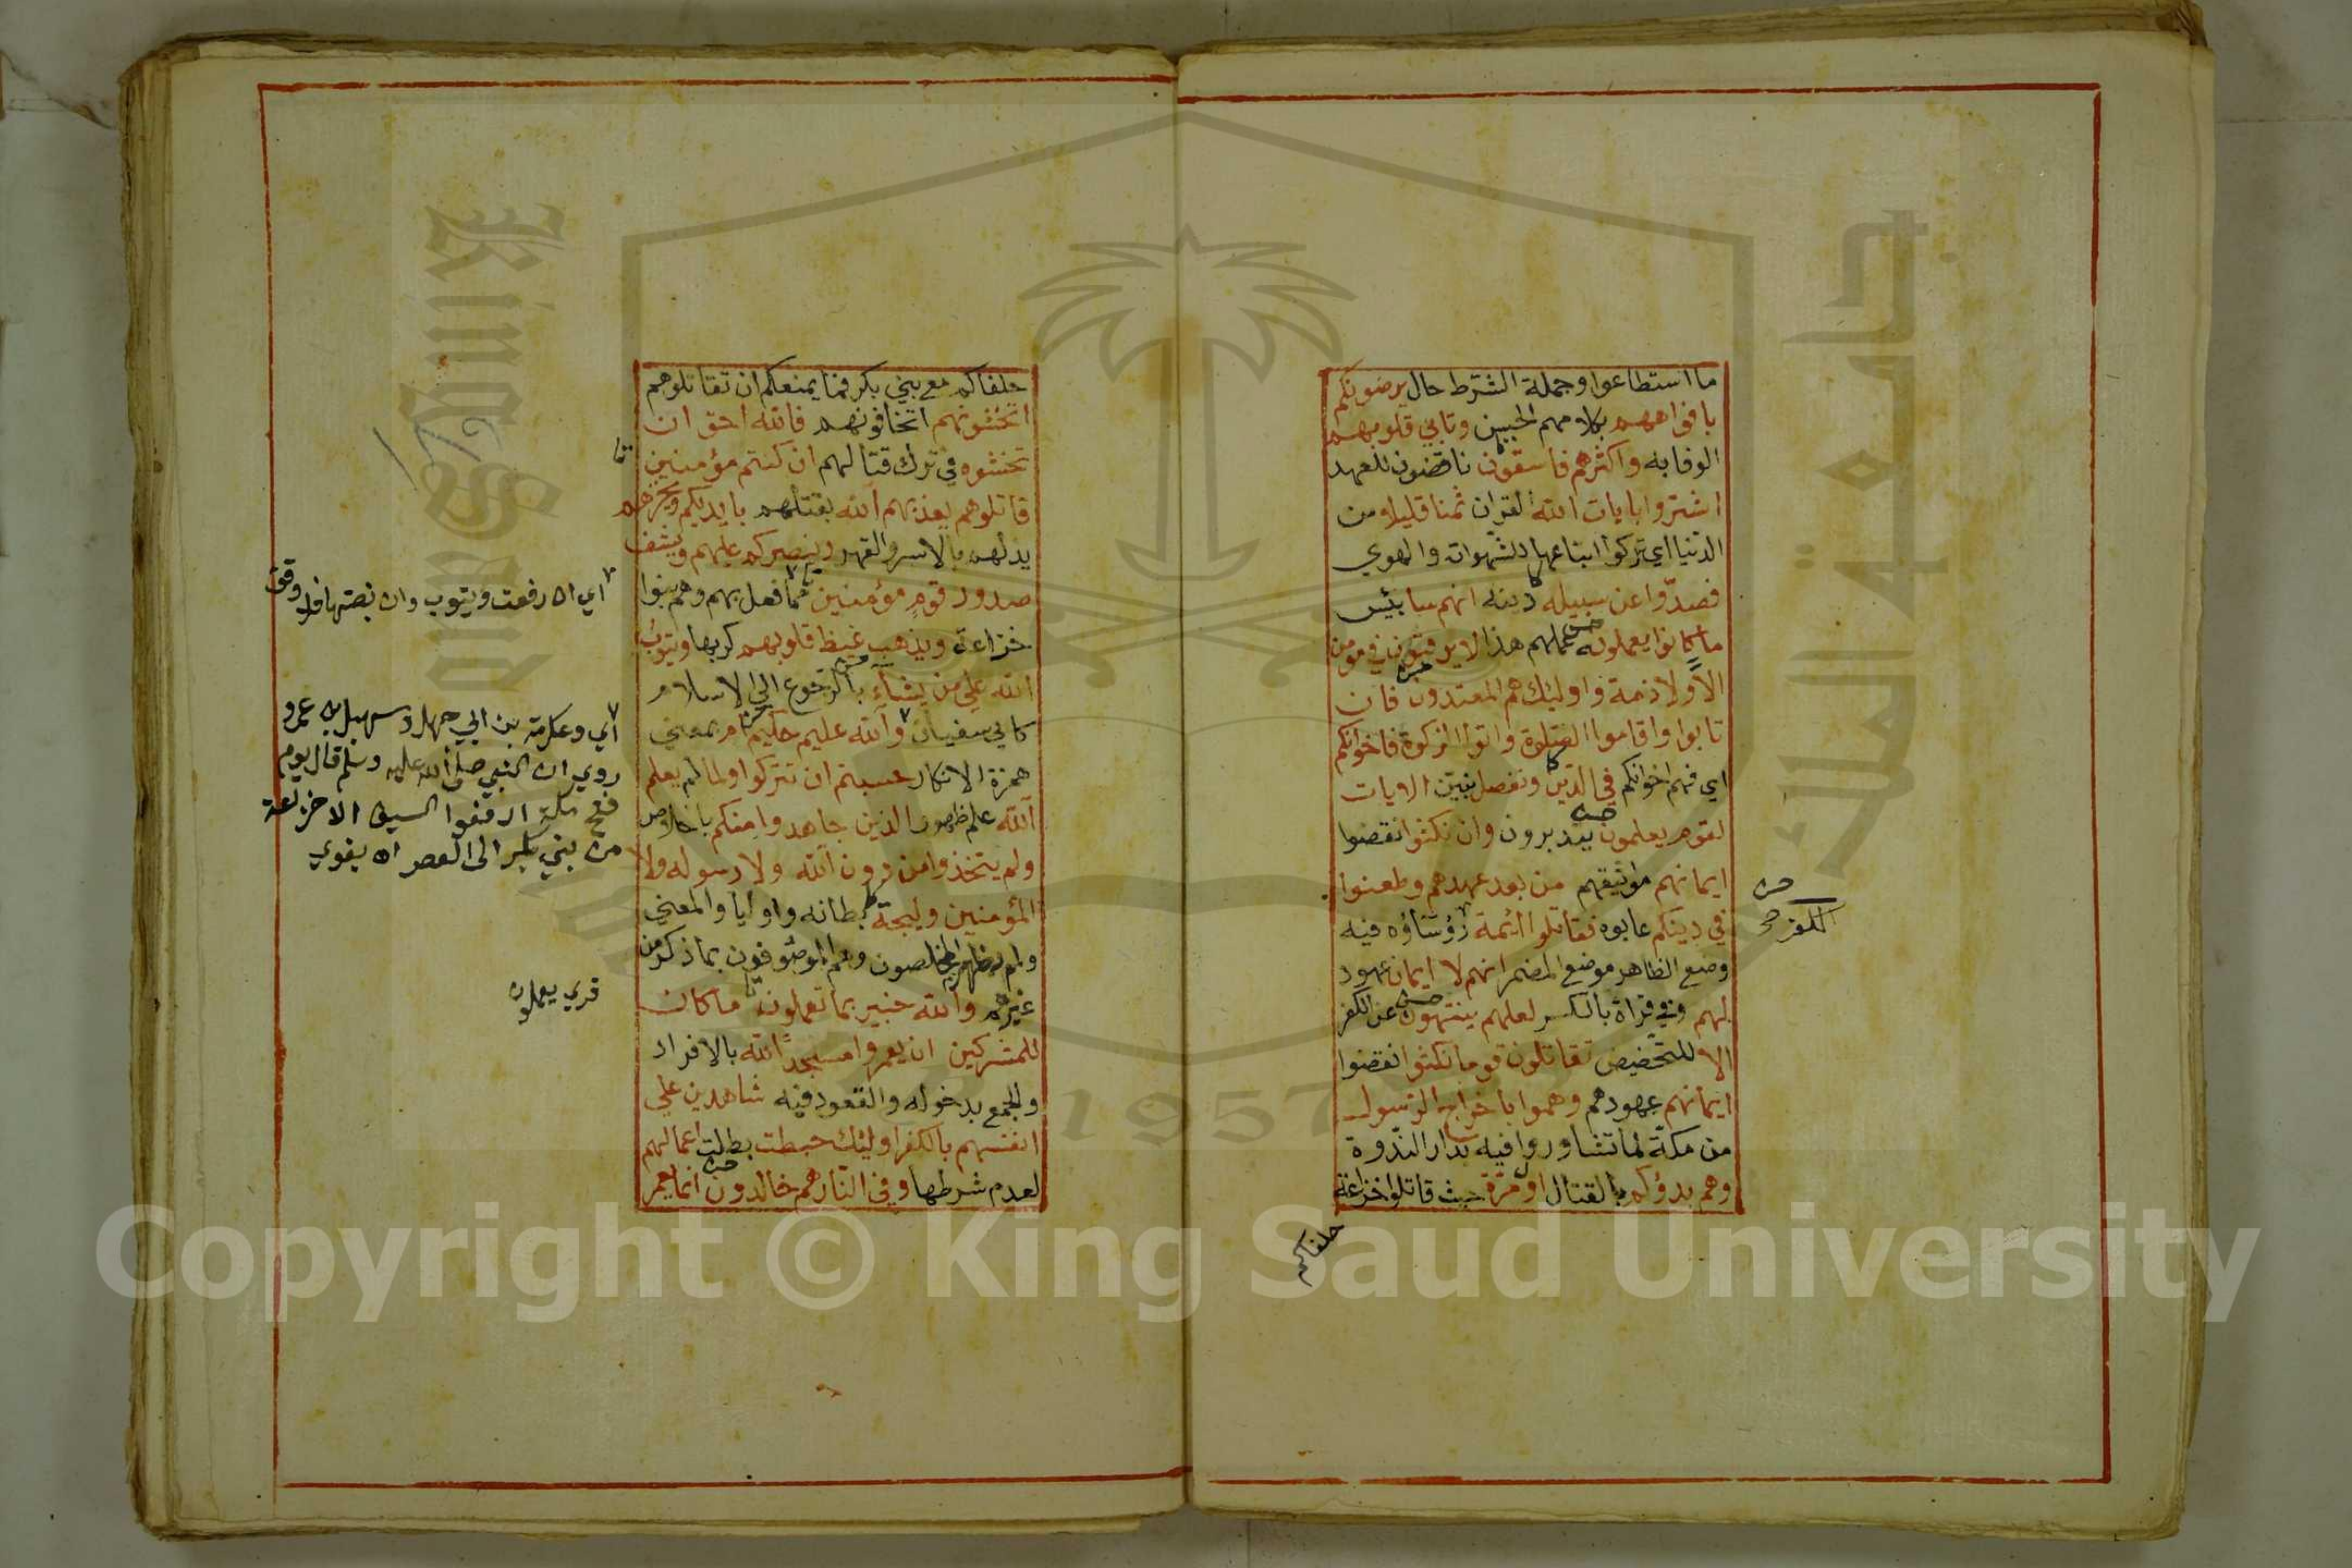 ما استطاعوا وجملة الشرط حال يرضونكم
بافواههم بكلامهم الحسن وتابي قلوبهم
الوفا به واكثرهم فاسقون ناقضون للعهد
اشتروا بايات الله القران ثمنا قليلا من
الدنيا اي تركوا اتباعها للشهوات والهوي
فصدوا عن سبيله دينه انهم سا بئس
ما كانوا يعملونه عملهم هذا لا يرقبون في مومن
الا ولا ذمة واوليك هم المعتدون فان
تابوا واقاموا الصلوة واتوا الزكوة فاخوانكم
اي فهم اخوانكم في الدين ونفصل نبين الايات
لقوم يعلمون يتدبرون وان نكثوا نقضوا
ايمانهم مواثيقهم من بعد عهدهم وطعنوا
في دينكم عابوه فقاتلوا ائمة رؤساؤه فيه
الكفر صح
وضع الظاهر موضع المضمر انهم لا ايمان عهود
لهم وفي قراة بالكسر لعلهم ينتهون عن الكفر
الا للتحضيض تقاتلون قوما نكثوا نقضوا
ايمانهم عهودهم وهموا باخراج الرسول
من مكة لما تشاوروا فيه بدار الندوة
وهم بدؤكم بالقتال اول مرة حيث قاتلوا خزاعة
حلفاكم
حلفاكم مع بني بكر فما يمنعكم ان تقاتلوهم
اتخشونهم اتخافونهم فالله احق ان
تخشوه في ترك قتالهم ان كنتم مؤمنين
قاتلوهم يعذبهم الله بقتلهم بايديكم ويخزهم
يذلهم بالاسر والقهر وينصركم عليهم ويشف
صدور قوم مؤمنين مما فعل بهم وهم بنوا
خزاعة ويذهب غيظ قلوبهم كربها ويتوب
الله علي من يشاء بالرجوع الي الاسلام
كابي سفيان والله عليم حكيم ام بمعني
همزة الانكار حسبتم ان تتركوا ولما لم يعلم
الله علم ظهور الذين جاهدوا منكم باخلاص
ولم يتخذوا من دون الله ولا رسوله ولا
المؤمنين وليجة بطانه واوليا والمعني
ولم يظهر المخلصون وهم الموصوفون بما ذكر من
غيرهم والله خبير بما تعملون ما كان
للمشركين ان يعمروا مسجد الله بالافراد
والجمع بدخوله والقعود فيه شاهدين علي
انفسهم بالكفر اوليك حبطت بطلت اعمالهم
لعدم شرطها وفي النار هم خالدون انما يعمر
اي ان رفعت ويتوب وان نصبتها
اي وعكرمة بن ابي جهل وسهيل بن عمرو
روي ان النبي صلى الله عليه وسلم قال يوم
فتح مكة ارفعوا السيف الا خزاعة
من بني بكر الى العصر
قري يعملون
Copyright © King Saud University
King Saud
1957